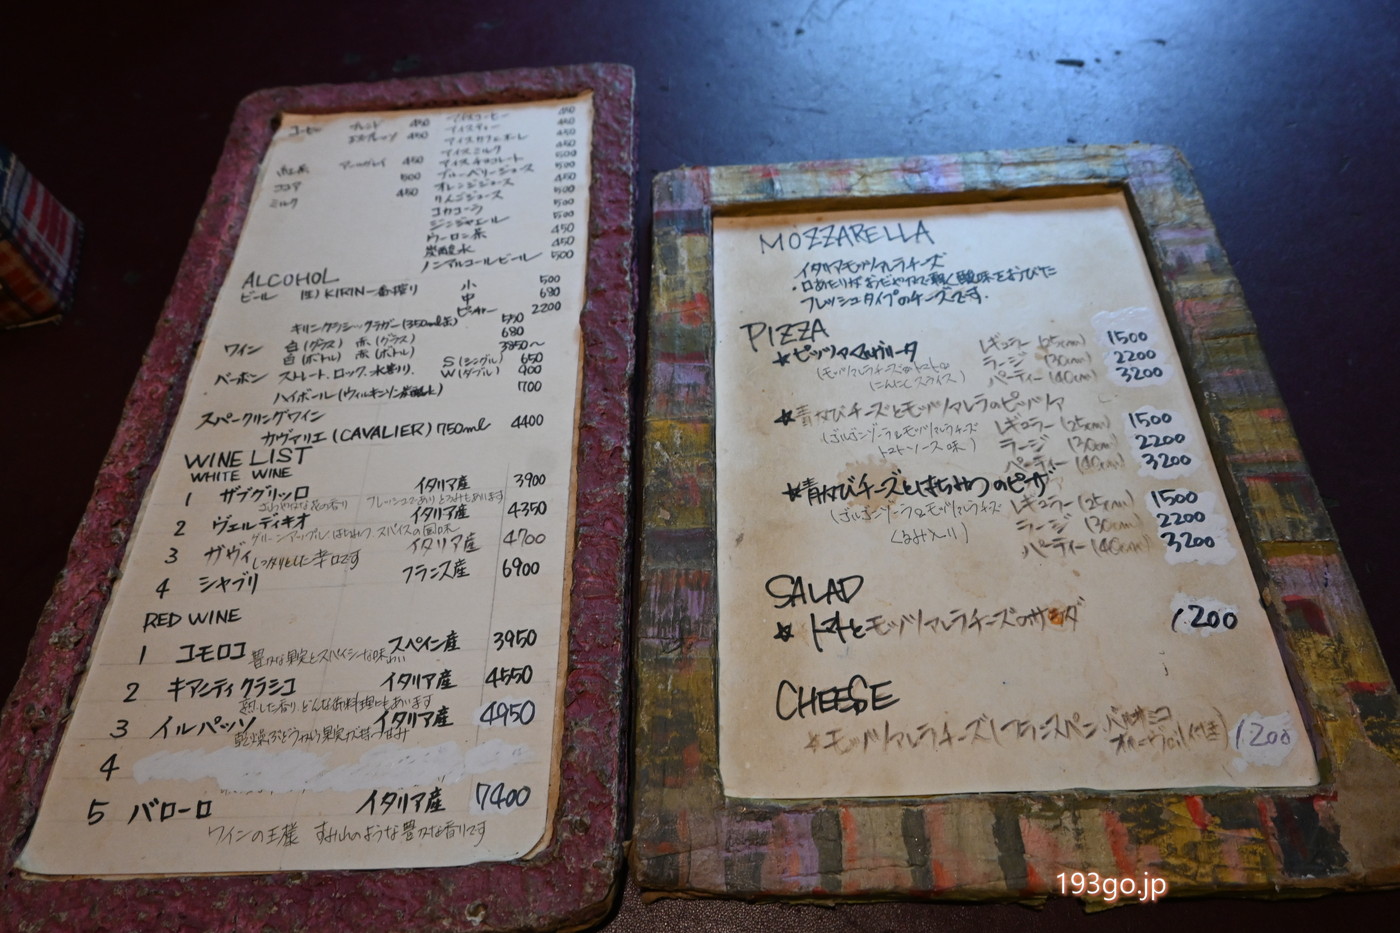 コーヒー ブレンド 450 アイスコーヒー 450
エスプレッソ 450 アイスティー 450
アイスカフェオーレ 450
紅茶 アールグレイ 450 アイスミルク 450
ココア 500 アイスチョコレート 500
ミルク 450 ブルーベリージュース 500
オレンジジュース 450
りんごジュース 500
コカコーラ 500
ジンジャエール 500
ウーロン茶 450
炭酸水 450
ノンアルコールビール 500
ALCOHOL
ビール (生) KIRIN一番搾り 小 500
中 680
ピッチャー 2200
キリンクラシックラガー (350ml缶) 550
ワイン 白(グラス) 赤(グラス) 680
白(ボトル) 赤(ボトル) 3850〜
バーボン ストレート、ロック、水割り、 S(シングル) 650
W(ダブル) 900
ハイボール(ウィルキンソン炭酸) 700
スパークリングワイン
カヴァリエ (CAVALIER) 750ml 4400
WINE LIST
WHITE WINE
1 ザブグリッロ イタリア産 3900
2 ヴェルディキオ イタリア産 4350
グリーンアップル、はちみつ、スパイスの風味
3 ガヴィ しっかりとした辛口です イタリア産 4700
4 シャブリ フランス産 6900
RED WINE
1 コモロコ 豊かな果実とスパイシーな味 スペイン産 3950
2 キアンティクラシコ イタリア産 4550
熟した香り どんなお料理にもあいます
3 イルパッソ イタリア産 4950
4
5 バローロ イタリア産 7400
ワインの王様 すみれのような豊かな香りです
MOZZARELLA
イタリアモッツァレラチーズ
・口あたりがおだやかで軽く酸味をおびた
フレッシュタイプのチーズです.
PIZZA
★ピッツァマルゲリータ レギュラー (25cm) 1500
(モッツァレラチーズ トマト ラージ (30cm) 2200
にんにくスライス) パーティー (40cm) 3200
★青かびチーズとモッツァレラのピッツァ
(ゴルゴンゾーラとモッツァレラチーズ レギュラー (25cm) 1500
トマトソース味) ラージ (30cm) 2200
パーティー (40cm) 3200
★青かびチーズとはちみつのピーザ
(ゴルゴンゾーラとモッツァレラチーズ レギュラー (25cm) 1500
くるみ入り) ラージ (30cm) 2200
パーティー (40cm) 3200
SALAD
★トマトとモッツァレラチーズのサラダ 1200
CHEESE
★モッツァレラチーズ(フランスパン バルサミコ オリーブoil付き) 1200
193go.jp